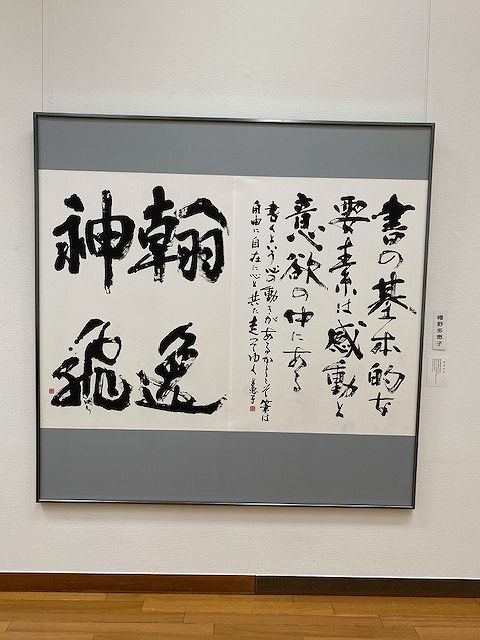 書の基本的な
要素は感動と
意欲の中にある
書くという心の動きがあるからこそ筆は
自由に自在に心と共に走ってゆく
翰逸
神飛
幡野多恵子